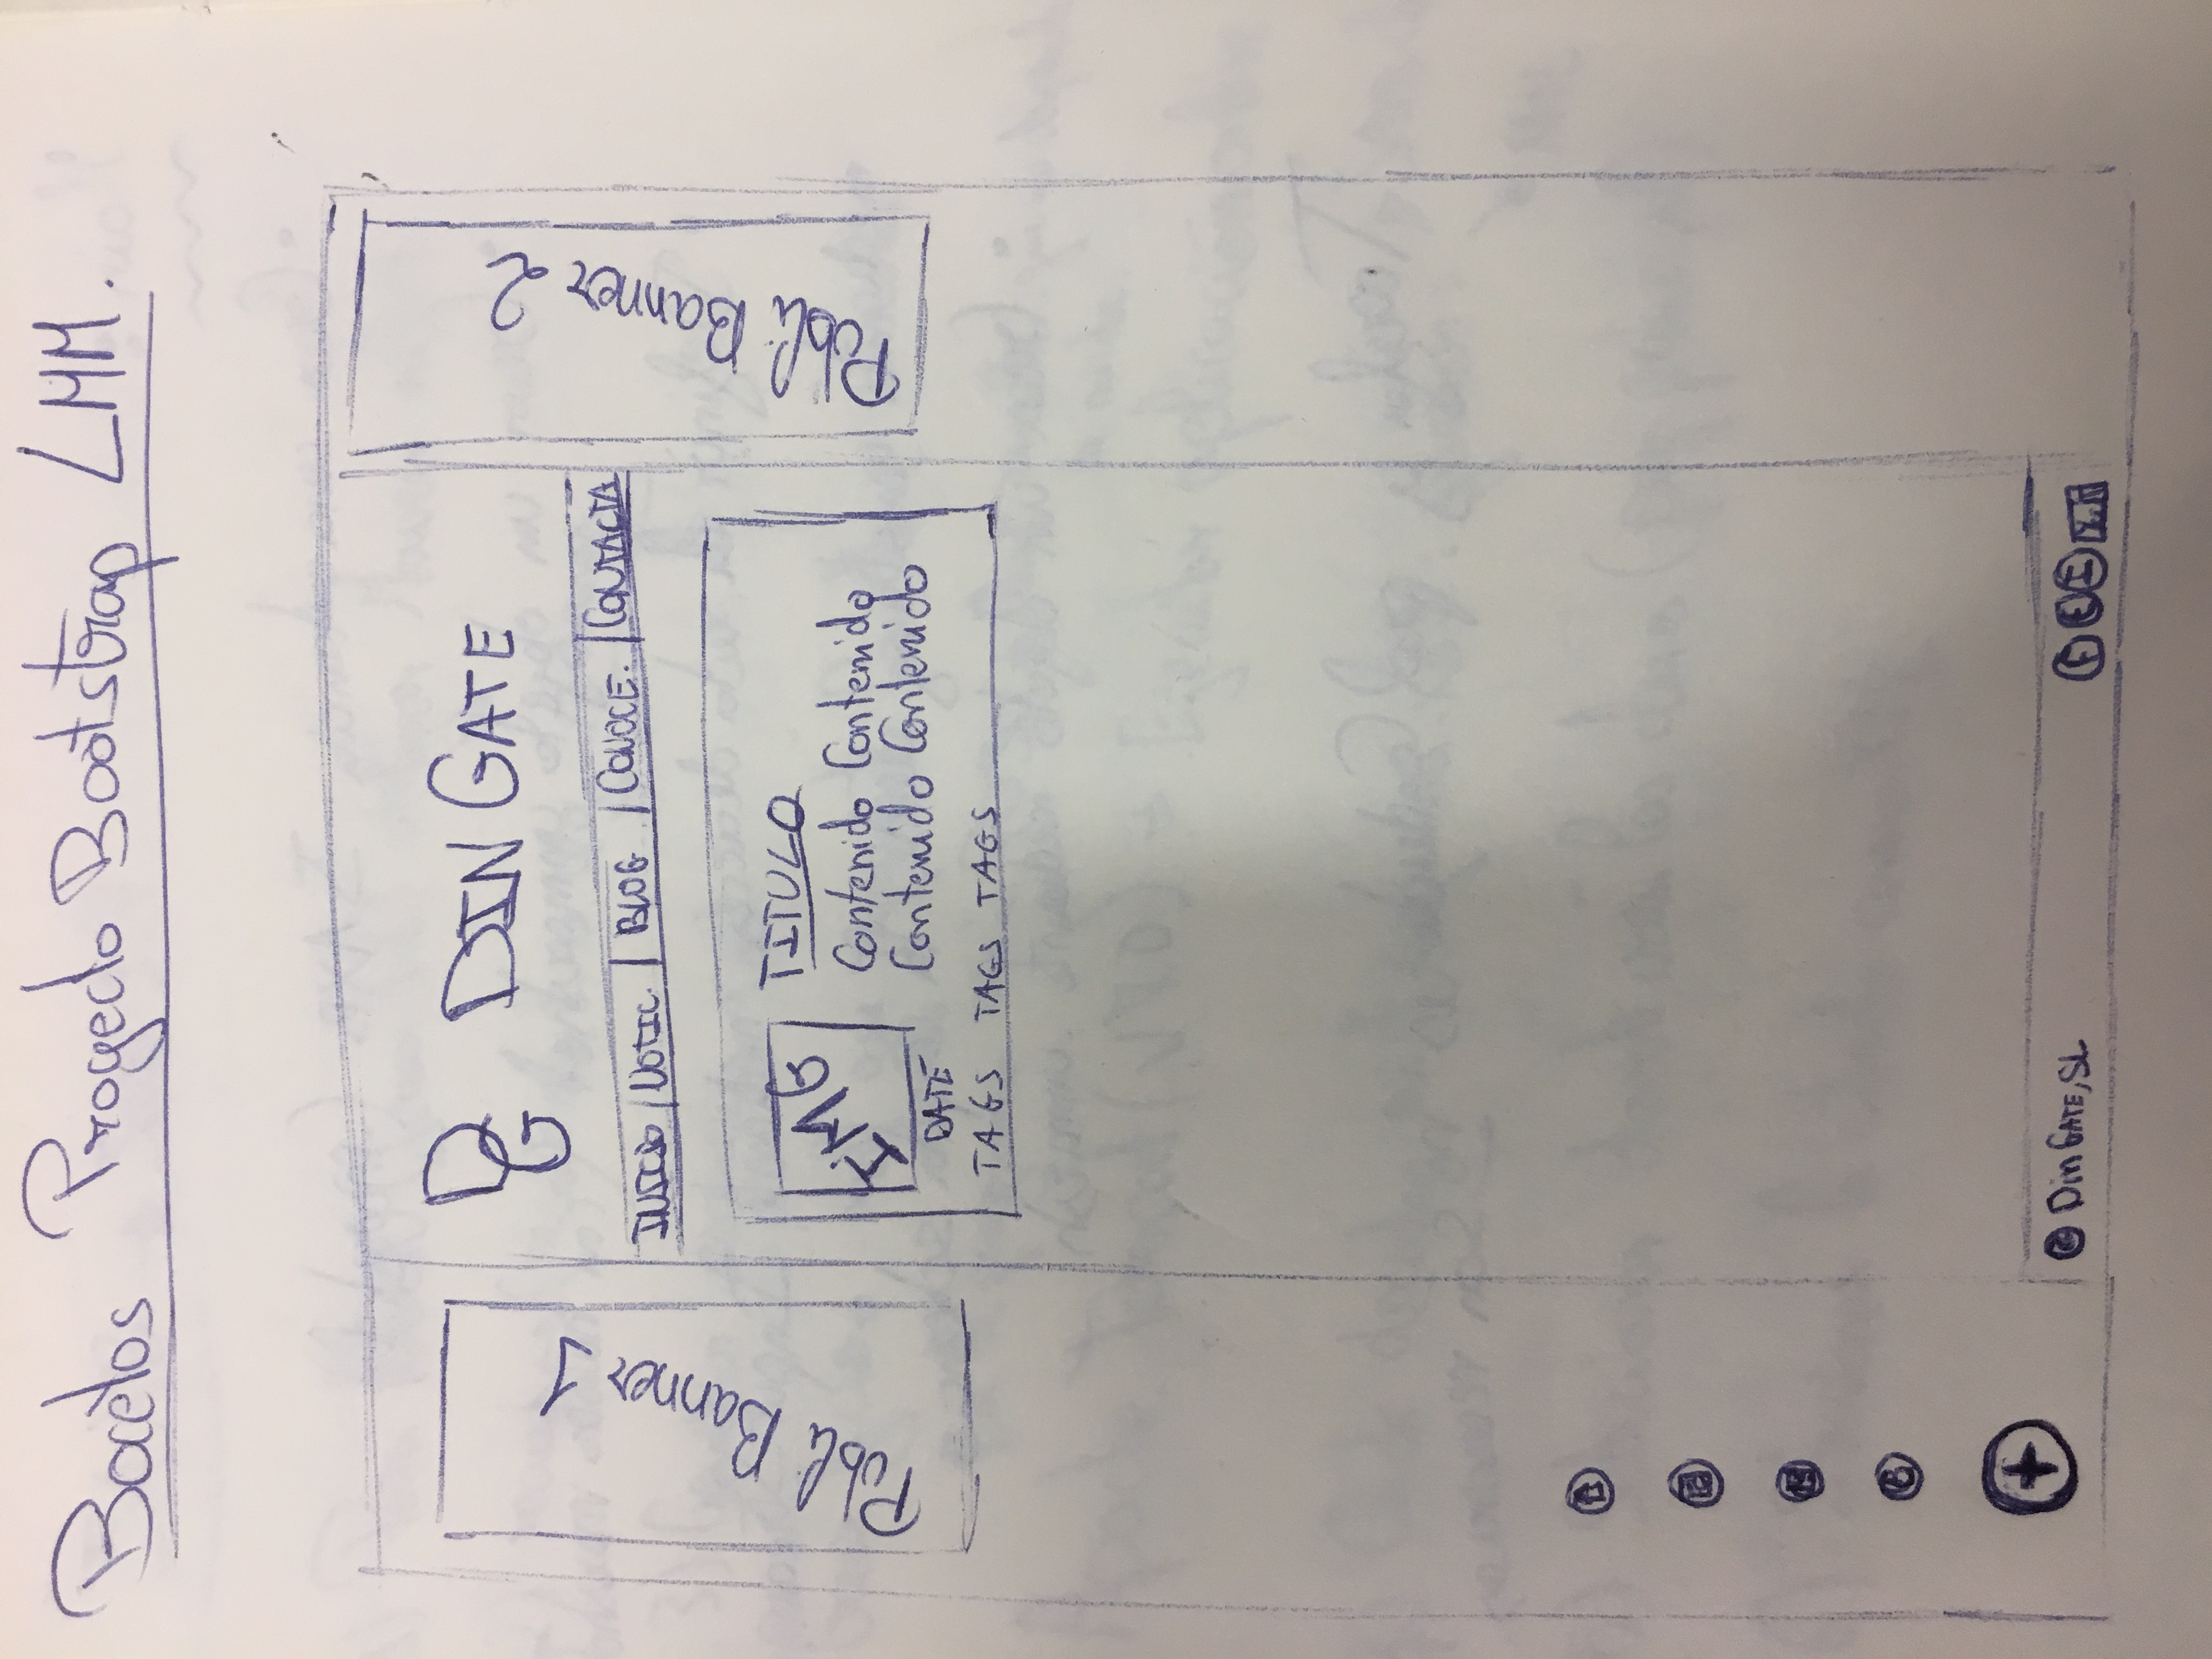 Bocetos Proyecto Bootstrap LMM.
Publi Banner 1
DG DIN GATE
INICIO / NOTIC. / BLOG / CONOCE. / CONTACTA
Publi Banner 2
IMG
TITULO
Contenido Contenido
Contenido Contenido
DATE
TAGS TAGS TAGS
+
© Din GATE, SL